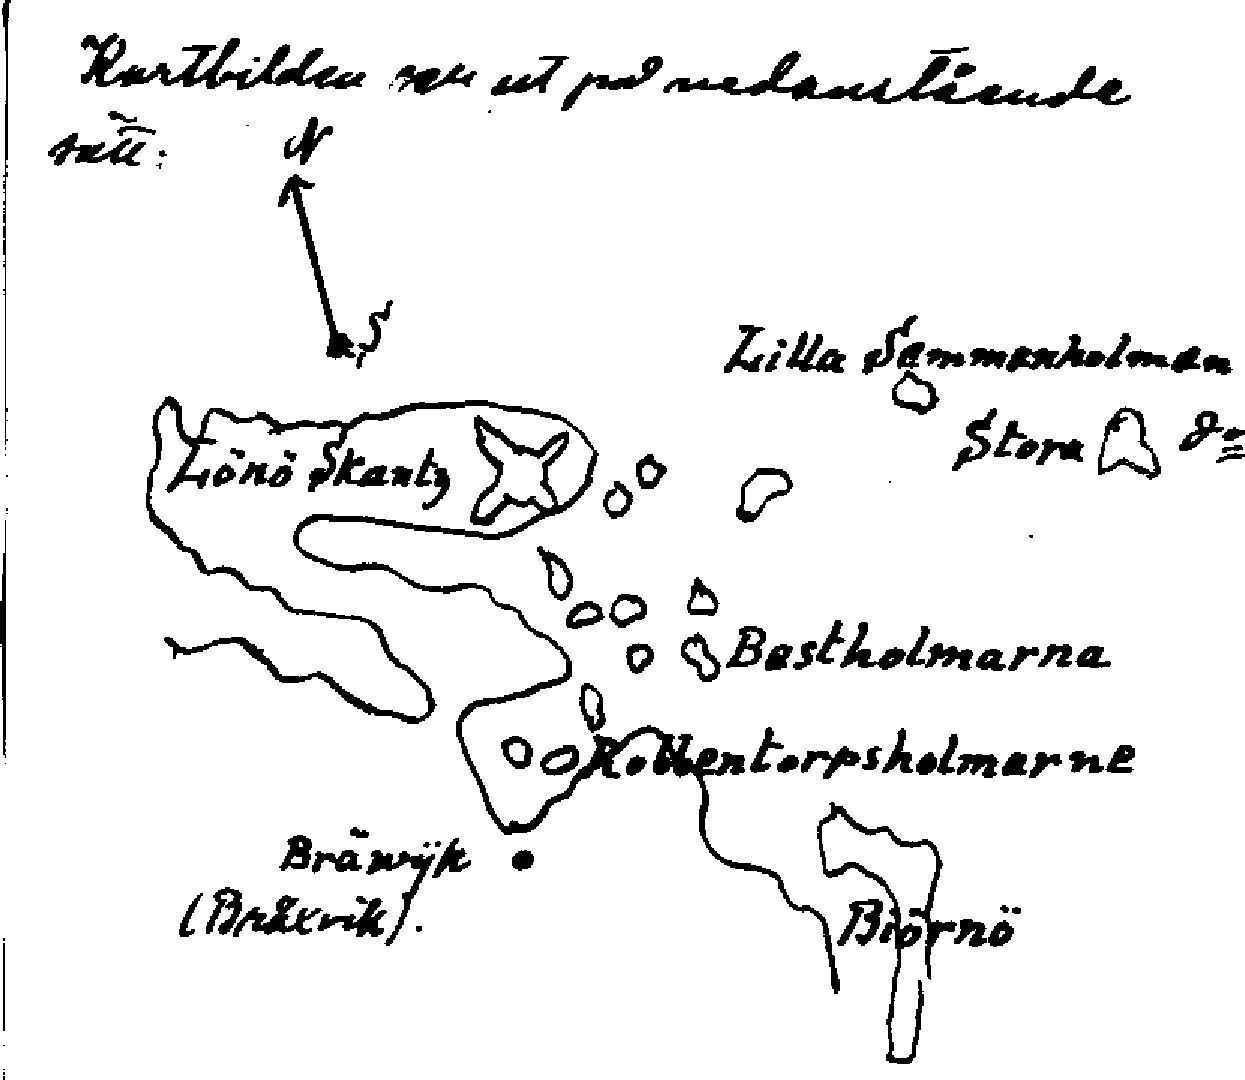 Kartbilden ser ut på nedanstående
sätt:
N
S
Lilla Sammanholman
Stora
Lönö Skantz
Bastholmarna
Kottentorpsholmarne
Bräwijk
(Bråxvik).
Biörnö